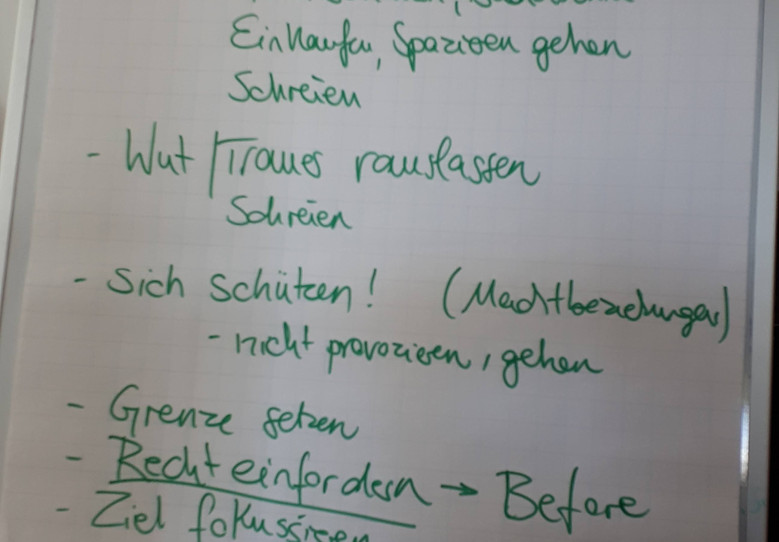 Einkaufen, Spazieren gehen
Schreien
- Wut / Trauer rauslassen
Schreien
- Sich schützen! (Machtbeziehungen)
- nicht provozieren, gehen
- Grenze setzen
- Recht einfordern → Before
- Ziel fokussieren